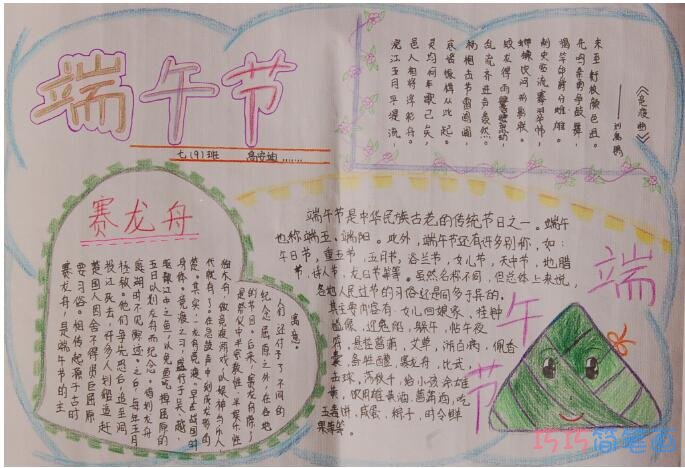 端午节
七(9)班
《竞渡曲》
刘禹锡
沅江五月平堤流，
邑人相将浮彩舟。
灵均何年歌已矣，
哀谣振楫从此起。
杨桴击节雷阗阗，
乱流齐进声轰然。
蛟龙得雨
赛龙舟
赛龙舟，是端午节的主
要习俗。相传起源于古时
楚国人因舍不得贤臣屈原
投江死去，许多人划船追赶
拯救。他们争先恐后，追至洞
庭湖时不见踪迹。之后每年五月
五日以划龙舟而纪念。借划龙舟
驱散江中之鱼，以免鱼吃掉屈原的
身体。竞渡之习，盛行于吴、越、
楚。其实，
代就有了。在急鼓声中划
独木舟，做竞渡游戏，以娱神与乐人，
是祭仪中半宗教性、半娱乐性
的节目。后来，赛龙舟除
纪念屈原之外，在各地
人们还付予了不同的
寓意。
端午节是中华民族古老的传统节日之一。端午
也称端五，端阳。此外，端午节还有许多别称，如：
午日节，重五节，五月节，浴兰节，女儿节，天中节，地腊
节，诗人节，龙日节等等。虽然名称不同，但总体上来说，
各地人民过节的习俗还是同多于异的。
其主要内容有：女儿回娘家，挂钟
馗像，迎鬼船，躲午，帖午夜
符，悬挂菖蒲，艾草，游百病，佩香
囊，备牲醴，赛龙舟，比武，
击球，荡秋千，给小孩涂雄
黄，饮用雄黄酒，菖蒲酒，吃
五毒饼，咸蛋，粽子，时令鲜
果等等。
端
午
节
巧巧简笔画